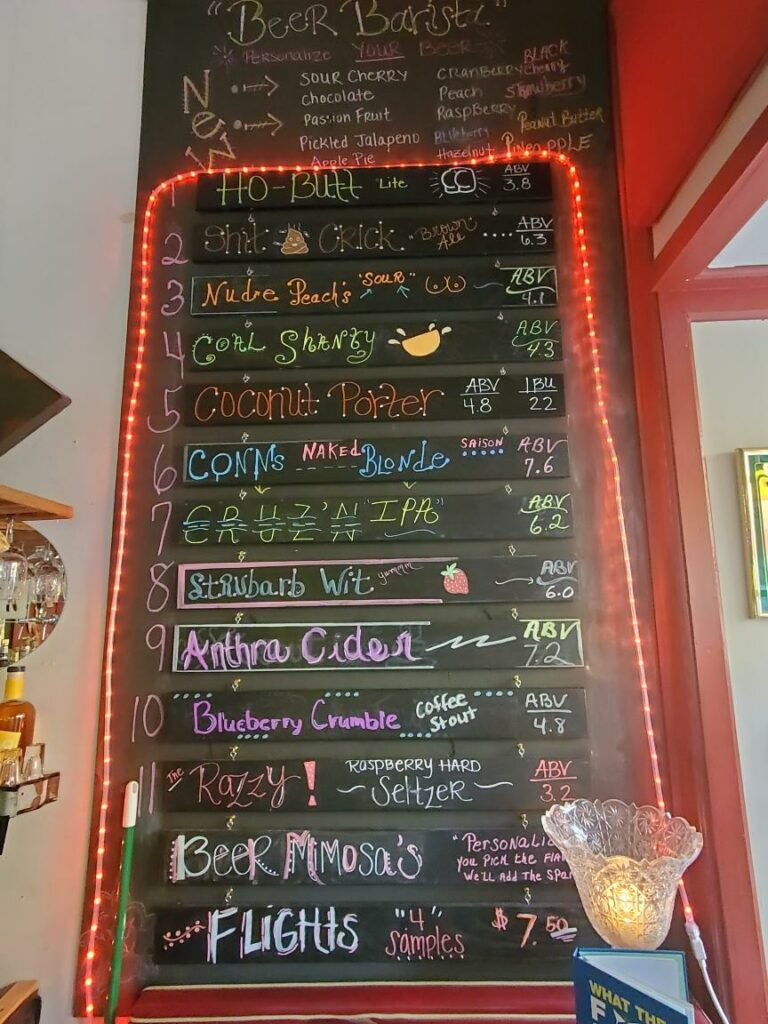 "Beer Barista"
Personalize YOUR Beer
New
SOUR CHERRY CRANBERRY BLACK Cherry
Chocolate Peach Strawberry
Passion Fruit RaspBerry Peanut Butter
Pickled Jalapeno Blueberry PineAPPLE
Apple Pie Hazelnut
1 HO-Butt "Lite" ABV 3.8
2 Shit Crick Brown Ale ..... ABV 6.3
3 Nude Peach's "SOUR" ABV 4.1
4 COAL SHANTY ABV 4.3
5 Coconut Porter ABV 4.8 IBU 22
6 CONN's NAKED BLONDE SAISON ABV 7.6
7 CRUZ'N "IPA" ABV 6.2
8 STRUBARB WIT yummm ABV 6.0
9 Anthra Cider ABV 7.2
10 Blueberry Crumble Coffee Stout ABV 4.8
11 The Razzy! RASPBERRY HARD SELTZER ABV 3.2
BEER MIMOSA'S "Personaliz
you Pick the Fla
we'll ADD THE SPAR
FLIGHTS "4" Samples $7.50
WHAT THE